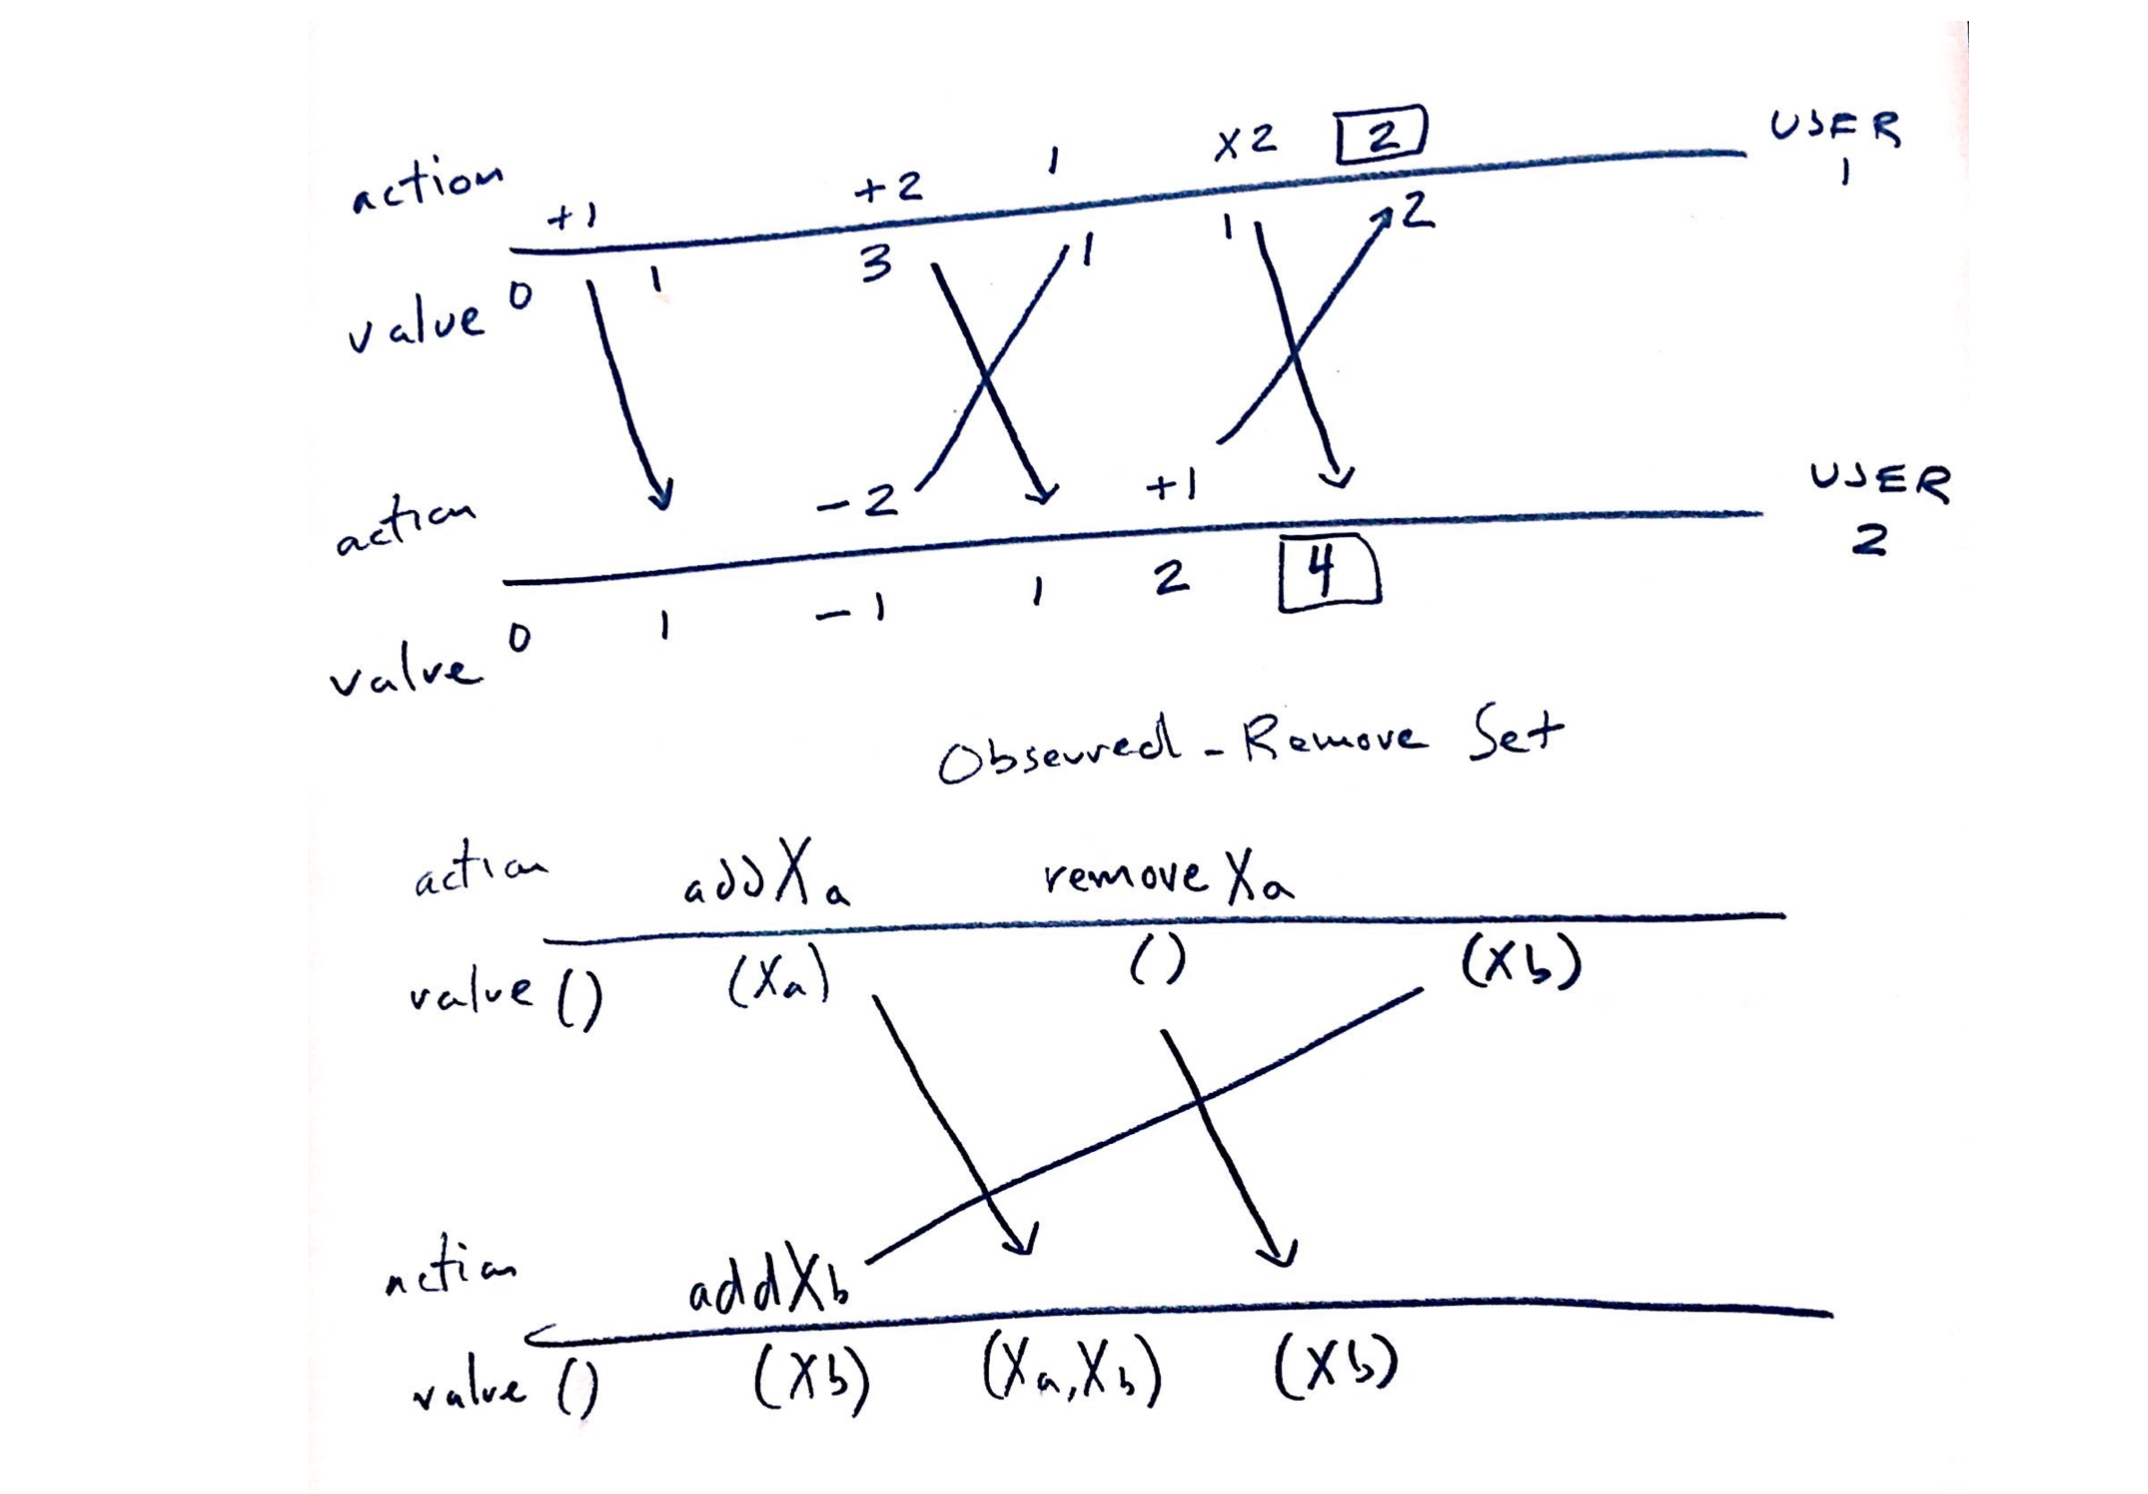 action +1 +2 1 x2 2 USER 1
value 0 1 3 1 1 2
action -2 +1 USER 2
value 0 1 -1 1 2 4
Observed - Remove Set
action addXa removeXa
value () (Xa) () (Xb)
action addXb
value () (Xb) (Xa,Xb) (Xb)